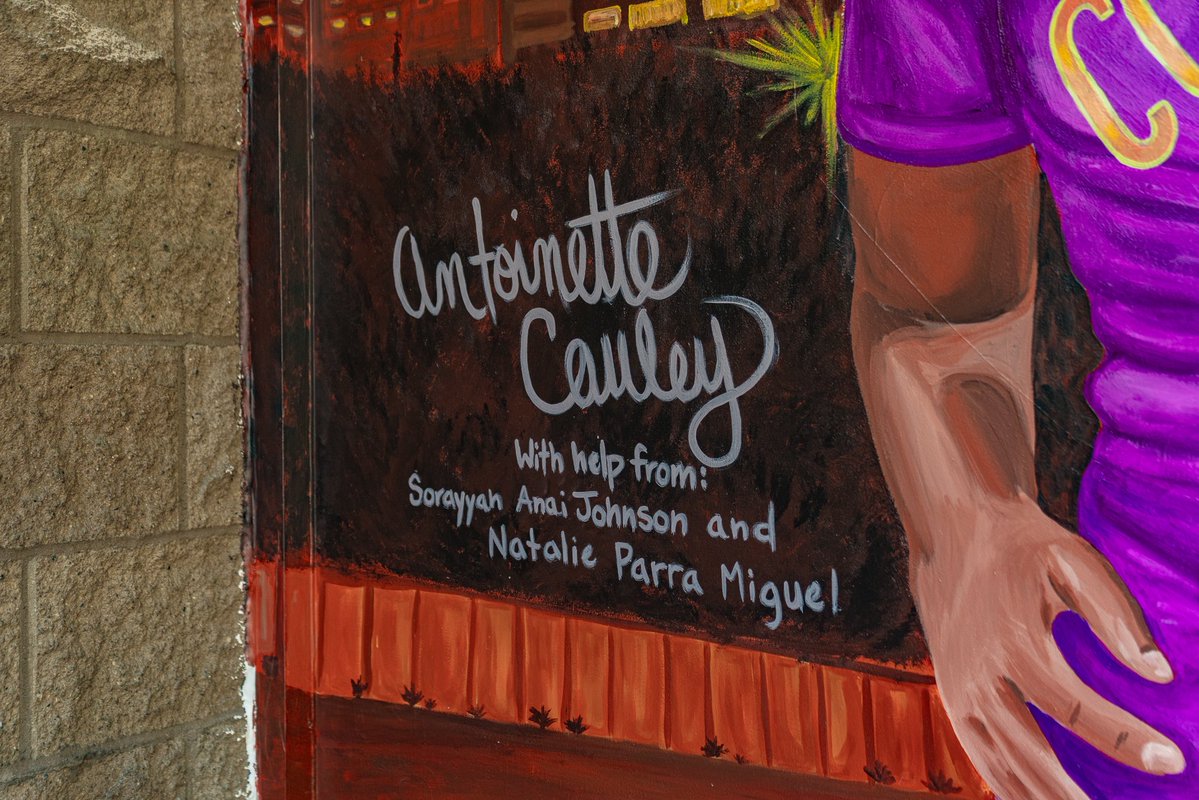 Antoinette
Cauley
With help from:
Sorayyah Anai Johnson and
Natalie Parra Miguel